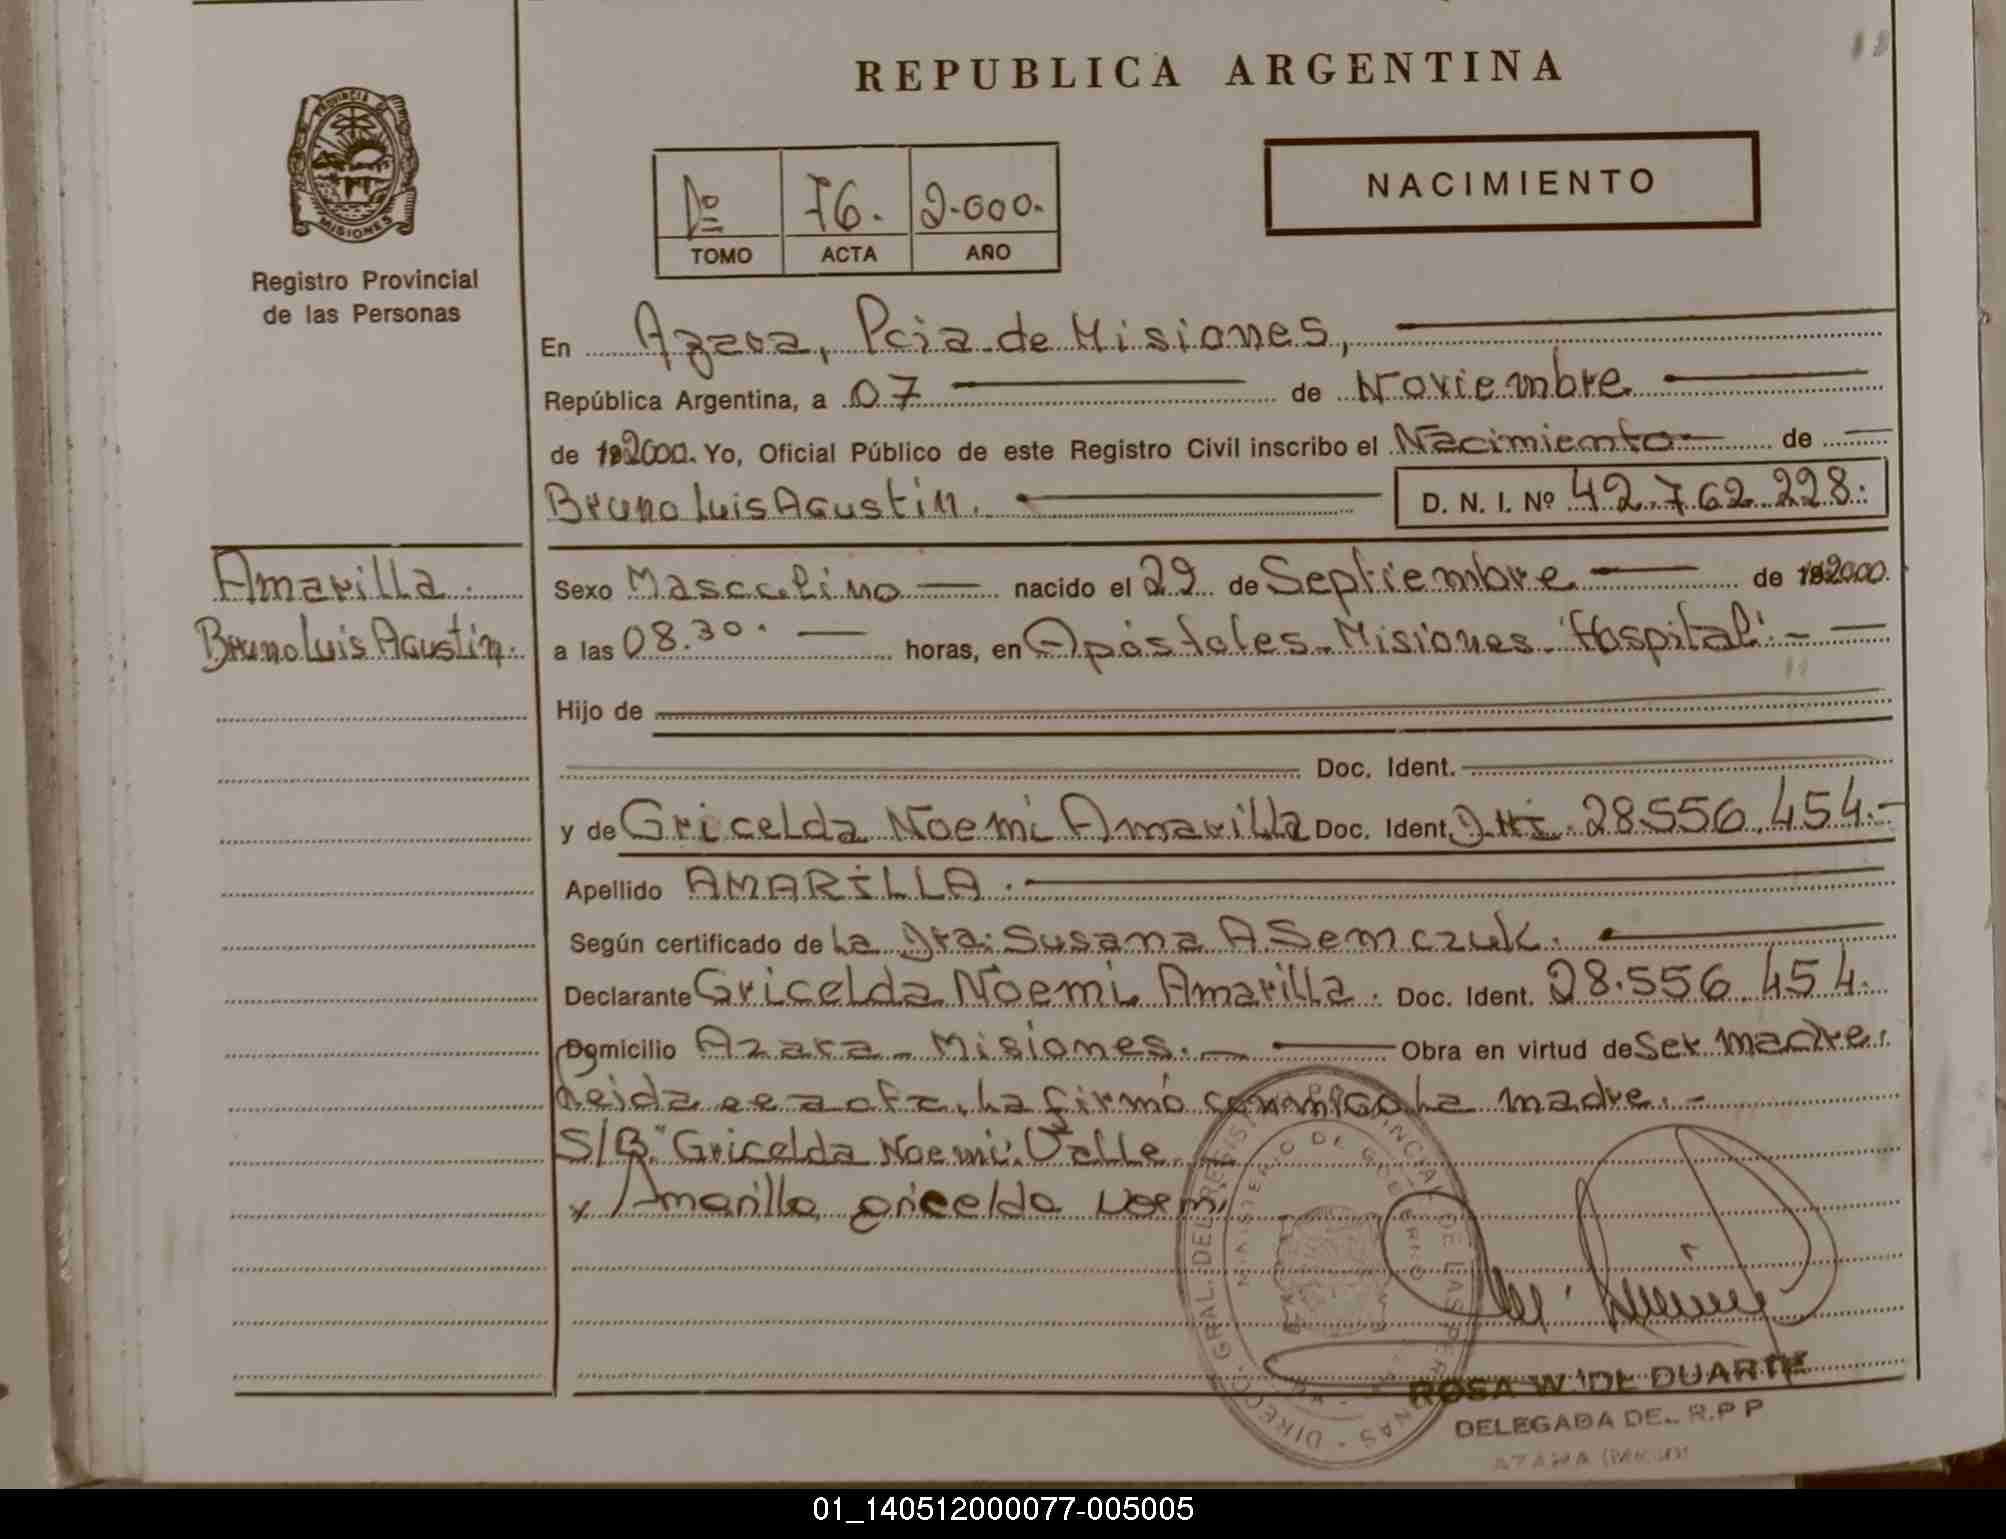 REPUBLICA ARGENTINA
PROVINCIA DE
MISIONES
Registro Provincial
de las Personas
1º 76. 2.000.
TOMO ACTA AÑO
NACIMIENTO
En Azara, Pcia de Misiones,
República Argentina, a 07 de Noviembre
de 192000. Yo, Oficial Público de este Registro Civil inscribo el Nacimiento de
Bruno Luis Agustin. D. N. I. Nº 42.762.228.
Amarilla.
Bruno Luis Agustin.
Sexo Masculino nacido el 29 de Septiembre de 192000.
a las 08.30. horas, en Apóstoles-Misiones-"Hospital".-
Hijo de
Doc. Ident.
y de Gricelda Noemi Amarilla Doc. Ident. 28.556.454.-
Apellido AMARILLA.
Según certificado de La Dra. Susana A Semczuk.
Declarante Gricelda Noemi Amarilla. Doc. Ident. 28.556.454.
Domicilio Azara-Misiones.- Obra en virtud de ser madre.
Leida acta, La firmó conmigo La madre.-
S/B. "Gricelda Noemi": Valle.
x Amarilla gricelda Noemi
DIRECC. GRAL. DEL REGISTRO PROVINCIAL DE LAS PERSONAS
MINISTERIO DE GOBIERNO
ROSA W. DE DUARTE
DELEGADA DE R.P P
01_140512000077-005005